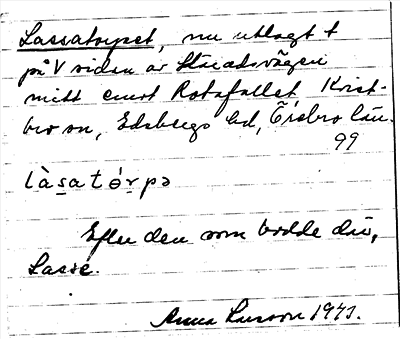 Lassatorpet, nu utlagt t
på V sidan av Staadsvägen
mitt emot Rotafallet Krist-
bro sn, Edsbergs hd, Örebro län.
99
làsatórpə
Efter den som bodde där,
Lasse.
Anna Larsson 1941.